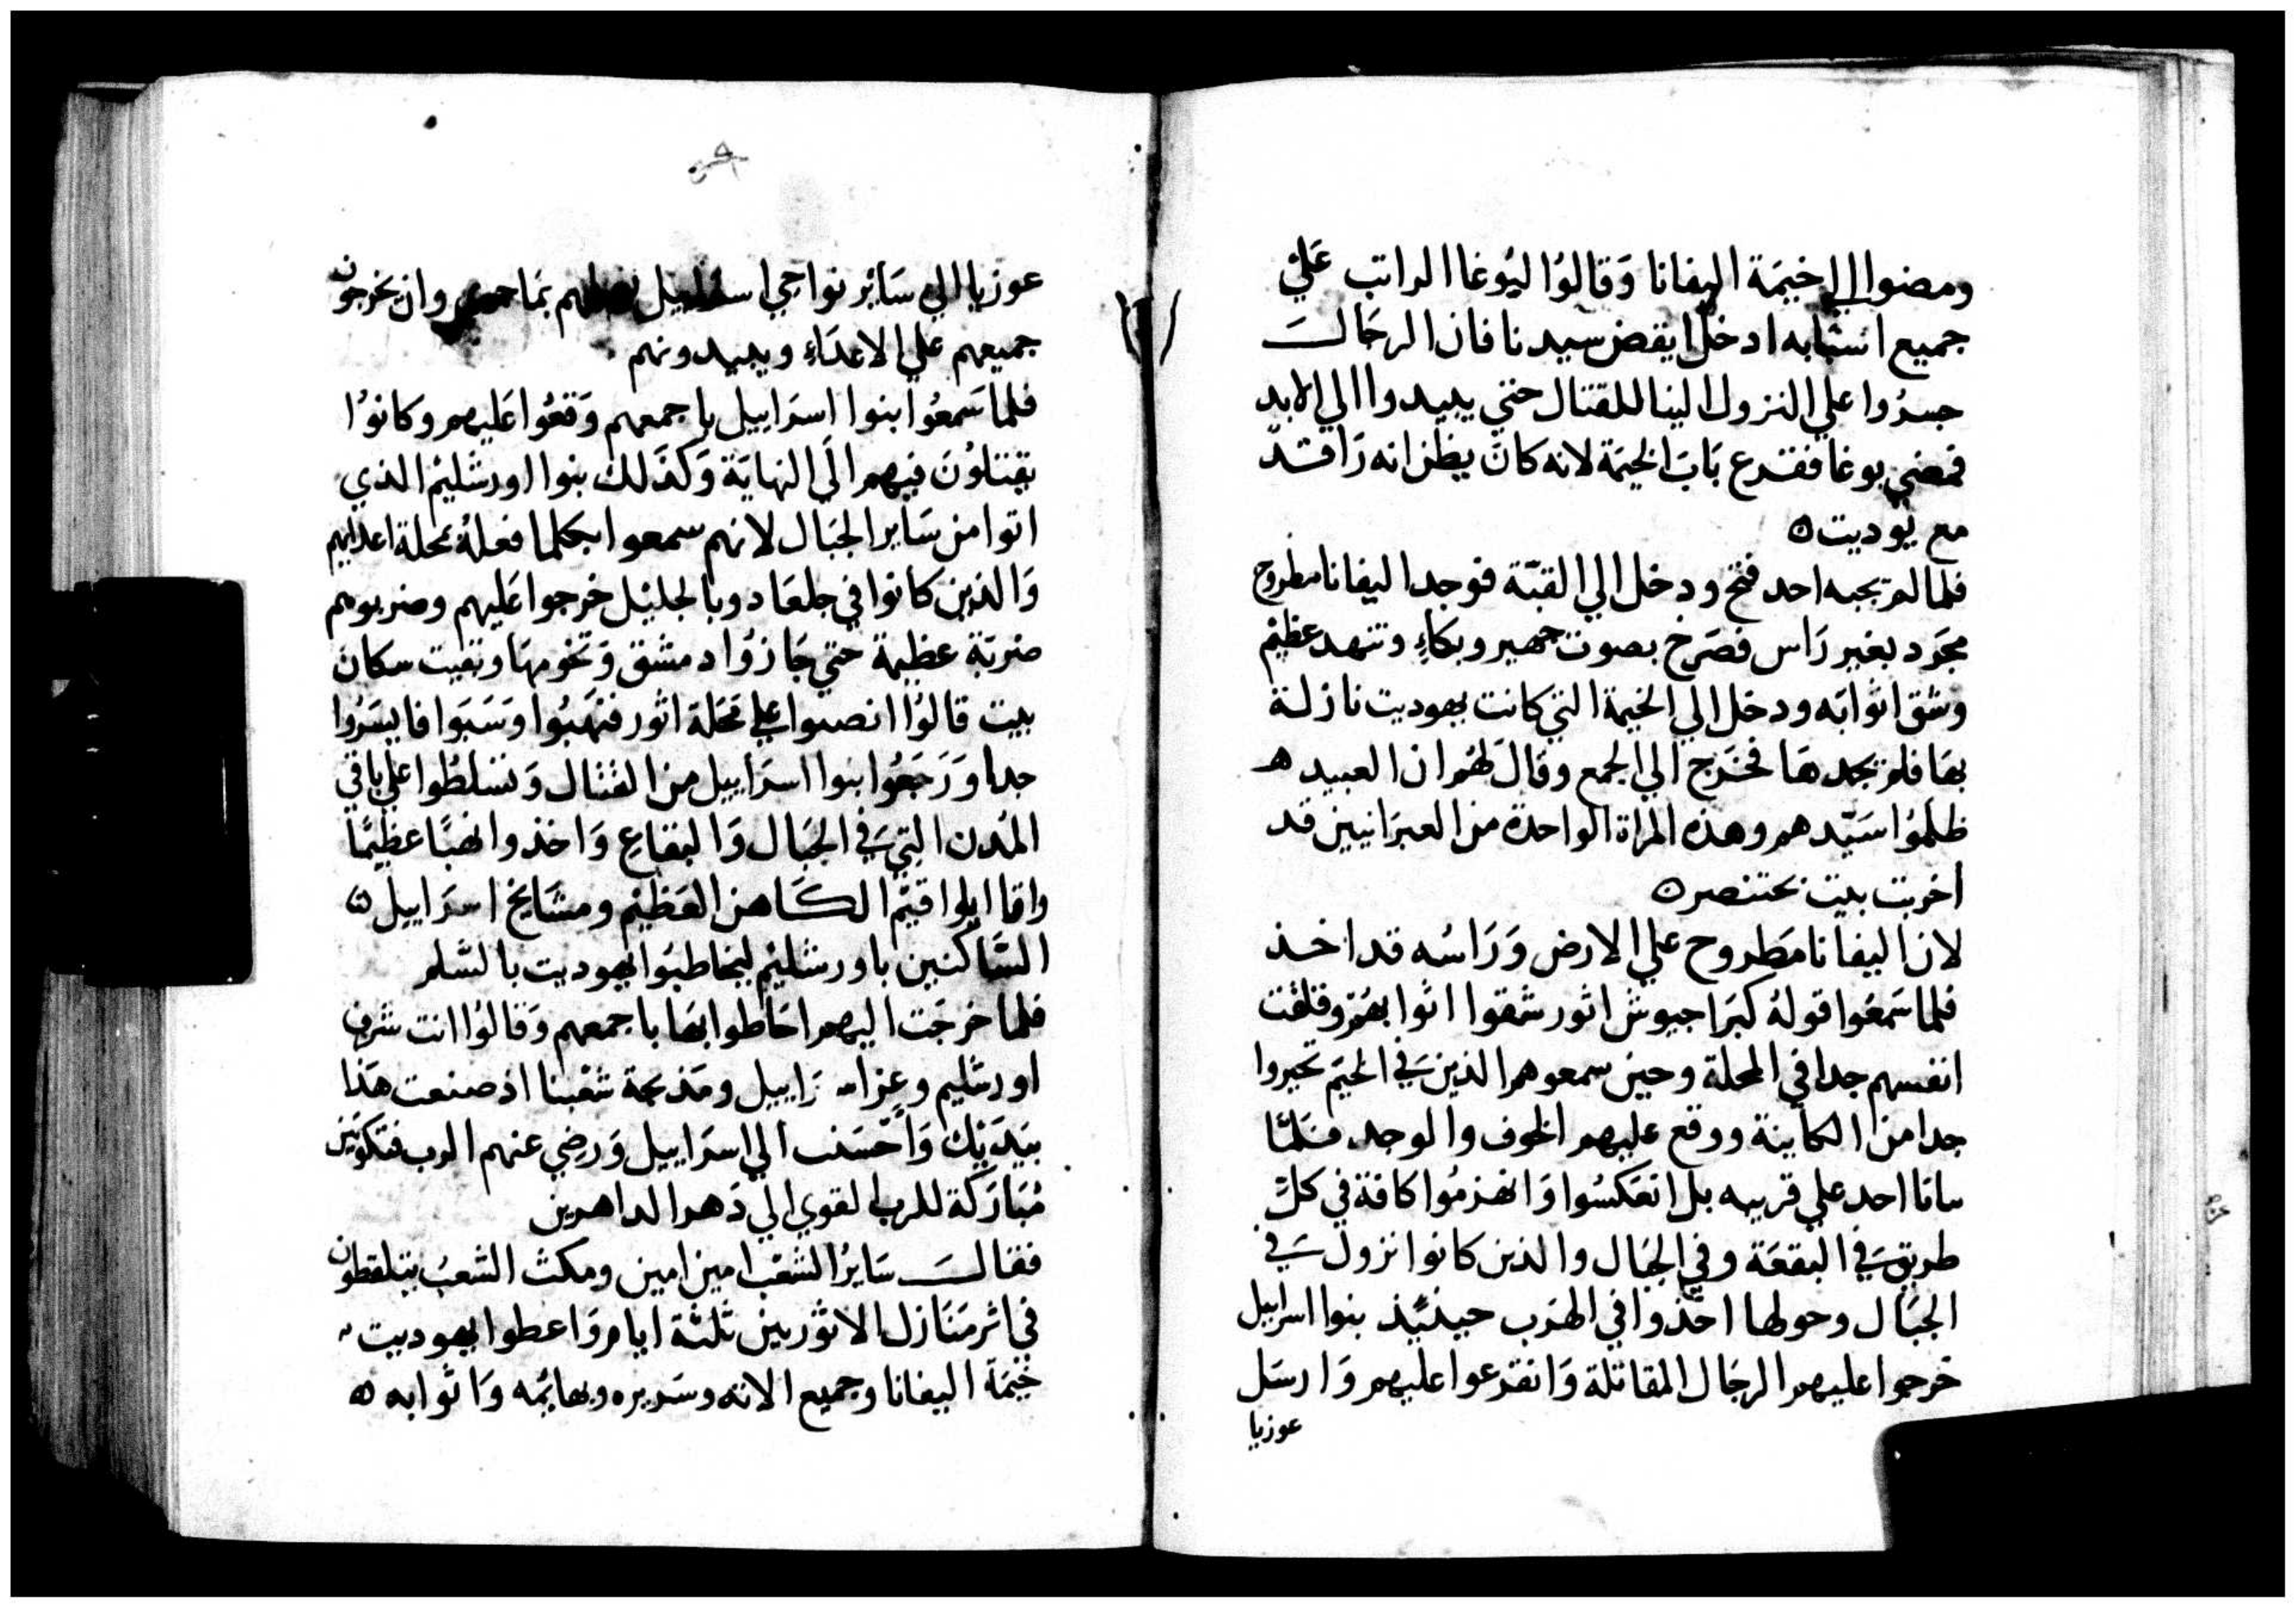 ومضوا الي خيمة اليفانا وَقالوُا ليُوغا الراتب عَليْ
جميع انسبابه ادخل ايقض سيدنا فان الرجَالـــَ
جسرُوا علي النزول الينا للقتال حتي يبيدوا الي الابد
فمضي بوغا فقرع بَابَ الخيمَة لانه كانَ يظن انه رَاقدٌ
مع يوديت ٥
فلما لم يجبه احد فتح ودخل الي القبّة فوجد اليفانا مطروح
مجرَد بغير رَاس فصَرخ بصوت جهير وبكاءٍ وتنهد عظيْم
وشق اثوابَه ودخل الي الخيمة التي كانت يهوديت نازلة
بهَا فلم يجدهَا فخرَج الي الجمع وقال لهُم ان العبيد هـ
ظلمُوا سَيّدهم وهذه المرَاة الواحدة من العبرَانيين قد
اخربت بيت بختنصر ٥
لان اليفانا مَطروح علي الارض وَرَاسُه قد اخـذ
فلما سَمعُوا قولهُ كبرَا جيوش اثور شقوا اثوابهُم وقلقت
انفسهم جدا في المحلة وحين سمعوهم الذينَ في الخيَم تحيروا
جدا من الكاينة ووقع عليهم الخوف والوجد فَلمّا
ساتا احد علي قريبه بل انعَكسُوا وَانهزمُوا كافة في كلِّ
طريق في البقعَة وفي الجبَال والذين كانوا نزول في
الجبَال وحولها اخذوا في الهرَب حينيٌذ بنوا اسراييل
خرجوا عليهم الرجَال المقاتلة وَانقرعوا عليهم وَارسَل
عوزيا
عوزيا الي سَايْر نواحي اسراييل بما وان يخرجون
جميعهم علي الاعدَاءِ ويبيدونهم
فلما سَمعُوا بنوا اسرَاييل باجمعهم وَقعُوا عَليهم وكانوُا
يقتلوُنَ فيهم الَي النهايَة وَكذَلك بنوا اورشَليمْ الذي
اتوا من سَاير الجبَال لانهم سمعوا بكلما فعلهُ بمحلة اعدايهم
وَالذين كانوا في جلعَاد وبالجليْل خرجوا عَليهم وضربوهم
ضربَة عظيمة حتي جَازوُا دمشق وَتخومهَا وتقيت سكان
بيت قالوُا انصبوا علي مَحَلة اثور فنهَبُوا وَسَبَوا فايسَرُوا
جدا وَرَجَعُوا بنوا اسرَاييل من القتال وَتسلطُوا علي باقي
المدن التي في الجبَال وَالبقاعِ وَاخذوا نهبًا عظيمًا
واما ايلوا قيمّ الكَاهن العَظيْم ومشَايخ اسرَاييل ٥
السَّاكنين باورشليْم ليخاطبَوا يهوديت بالسّلم
فلما خرجَت اليهم احَاطوا بهَا باجمعهم وَقالوُا انت شرف
اورشليم وعزاسـ رَاييل ومَذبحة شعْبنا اذ صنعت هَذا
بيَديَك وَاحْسَنت الي اسرَاييل وَرضِي عنهم الرب فتكونين
مُبَارَكَة للرب القوي الي دَهر الداهرين
فقالــَ سَايرُ الشعْب امين امين ومكث الشعبُ يتلقطون
في اثر مَنَازل الاثوريين ثلثة ايام وَاعطوا يهوديت
خيْمَة اليفانا وجميع الاته وسَريره وبهايمُه وَاثوابه ٥